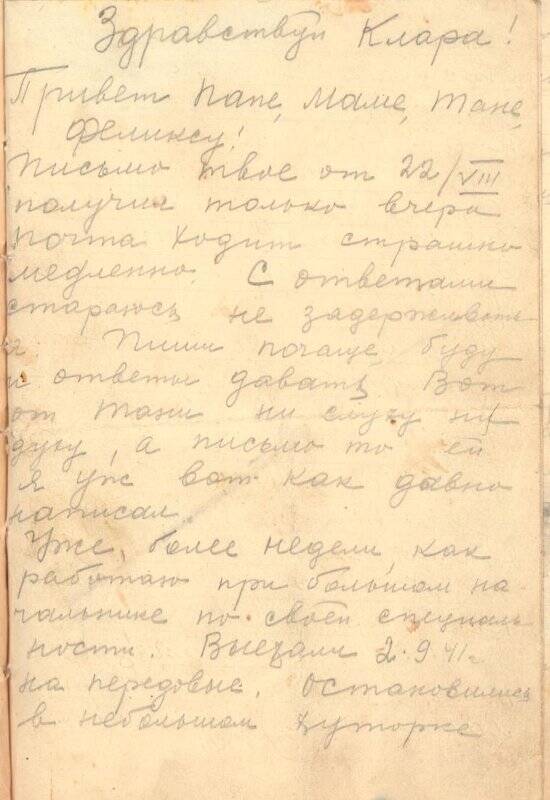 Здравствуй Клара!
Привет папе, маме, Тане,
Феликсу!
Письмо твое от 22/VIII
получил только вчера
почта ходит страшно
медленно. С ответами
стараюсь не задерживать
ся Пиши почаще, буду
и ответы давать. Вот
от Тани ни слуху ни
духу, а письмо то ей
я уж вот как давно
написал.
Уже, более недели, как
работаю при большом на-
чальнике по своей специаль
ности. Выехали 2.9.41г.
на передовые. Остановились
в небольшом хуторке